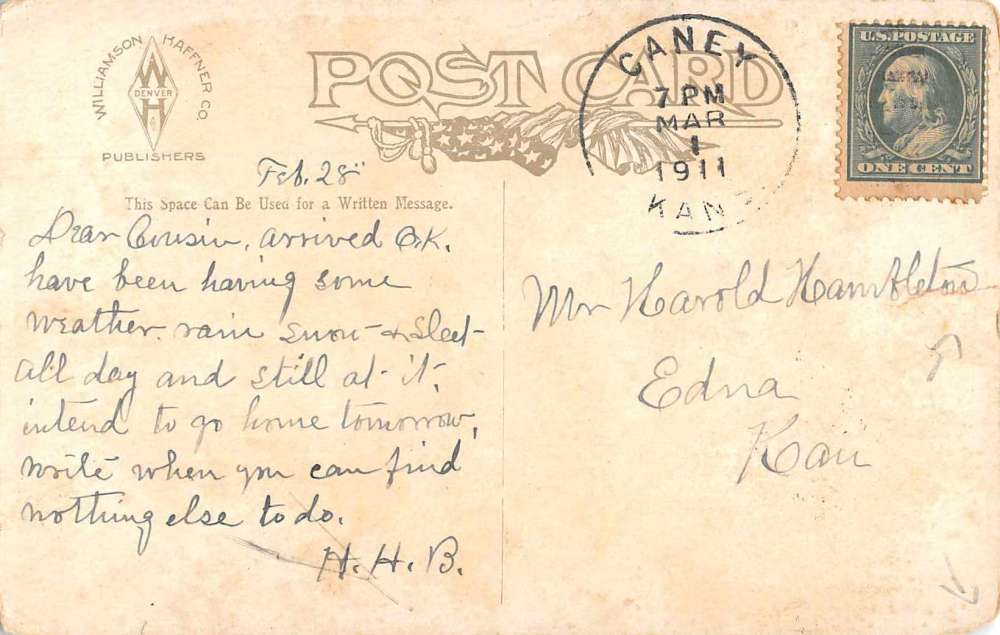 WILLIAMSON HAFFNER CO.
W H
DENVER
PUBLISHERS
POST CARD
CANEY
7 PM
MAR
1
1911
KAN
U.S. POSTAGE
ONE CENT
Feb. 28
This Space Can Be Used for a Written Message.
Dear Cousin, arrived O.K.
have been having some
weather. rain snow & sleet
all day and still at it,
intend to go home tomorrow,
write when you can find
nothing else to do.
H. H. B.
Mr Harold Hambleton
Edna
Kan